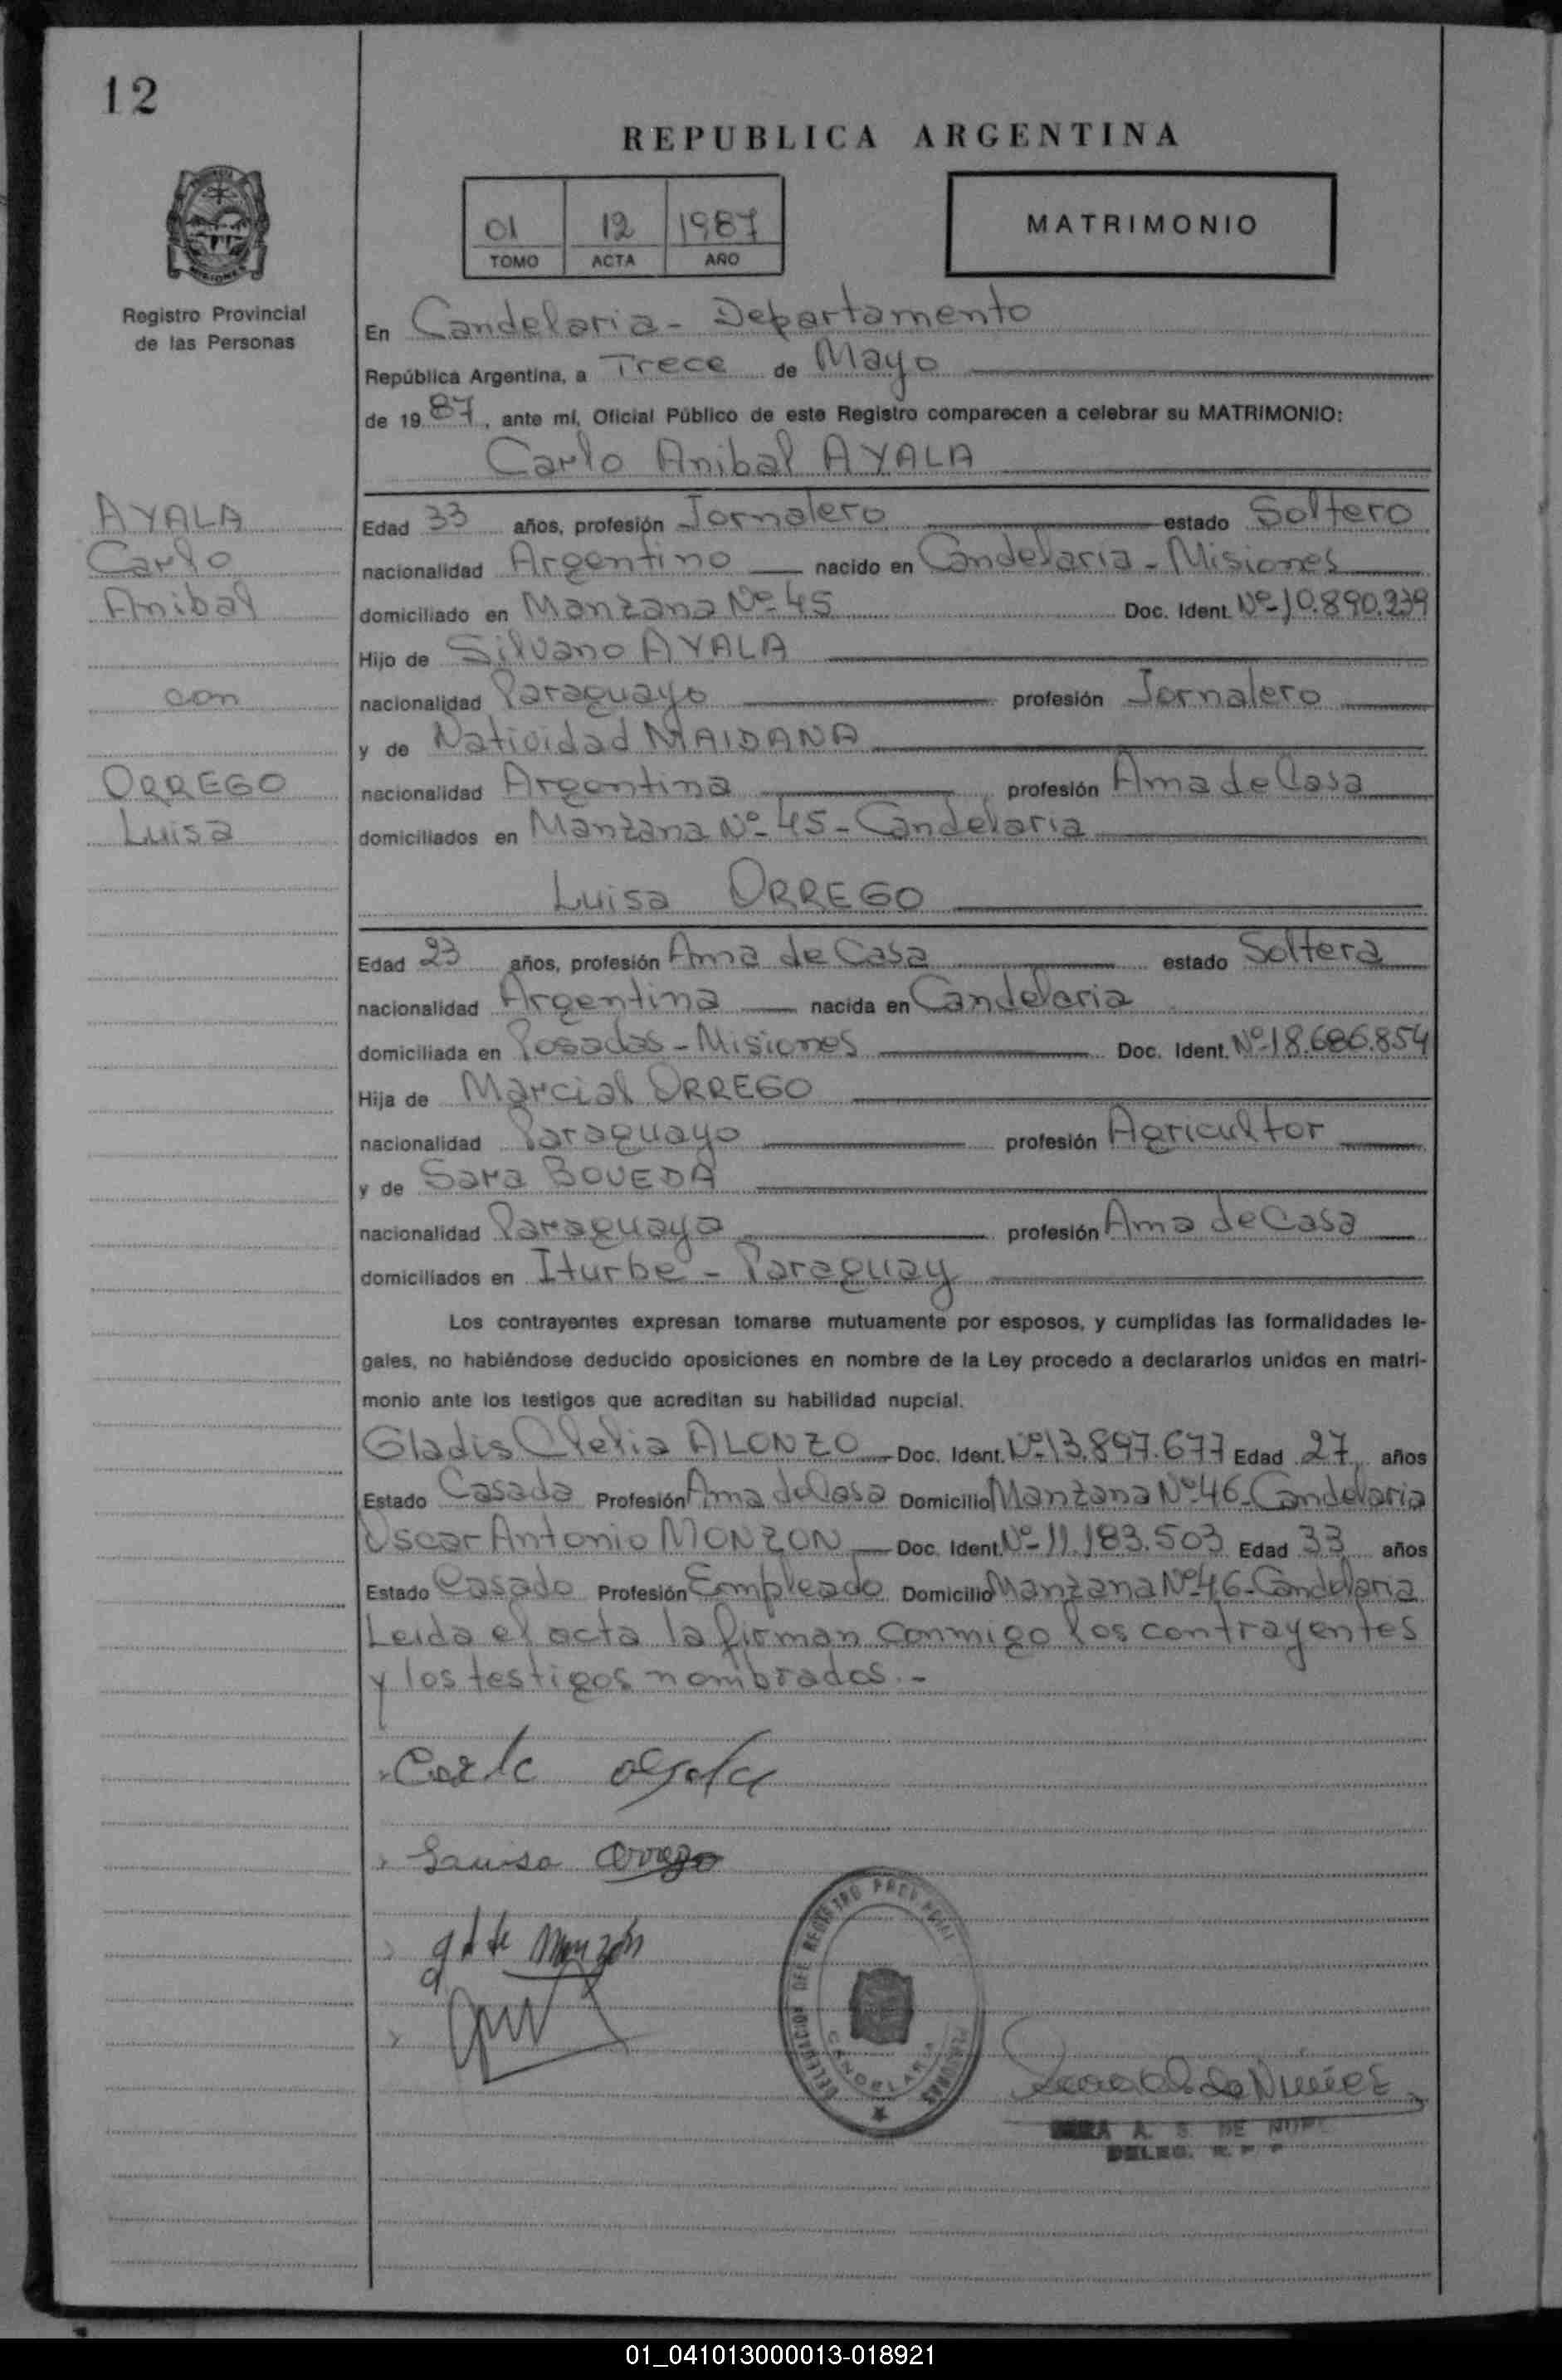 12
REPUBLICA ARGENTINA
01 12 1987
TOMO ACTA AÑO
MATRIMONIO
Registro Provincial
de las Personas
En Candelaria - Departamento
República Argentina, a Trece de Mayo
de 19 87, ante mí, Oficial Público de este Registro comparecen a celebrar su MATRIMONIO:
Carlo Anibal AYALA
AYALA
Carlo
Anibal
con
ORREGO
Luisa
Edad 33 años, profesión Jornalero estado Soltero
nacionalidad Argentino nacido en Candelaria - Misiones
domiciliado en Manzana Nº 45 Doc. Ident. Nº 10.890.239
Hijo de Silvano AYALA
nacionalidad Paraguayo profesión Jornalero
y de Natividad MAIDANA
nacionalidad Argentina profesión Ama de Casa
domiciliados en Manzana Nº 45 - Candelaria
Luisa ORREGO
Edad 23 años, profesión Ama de Casa estado Soltera
nacionalidad Argentina nacida en Candelaria
domiciliada en Posadas - Misiones Doc. Ident. Nº 18.686.854
Hija de Marcial ORREGO
nacionalidad Paraguayo profesión Agricultor
y de Sara BOVEDA
nacionalidad Paraguaya profesión Ama de Casa
domiciliados en Iturbe - Paraguay
Los contrayentes expresan tomarse mutuamente por esposos, y cumplidas las formalidades le-
gales, no habiéndose deducido oposiciones en nombre de la Ley procedo a declararlos unidos en matri-
monio ante los testigos que acreditan su habilidad nupcial.
Gladis Clelia ALONZO Doc. Ident. Nº 13.897.677 Edad 27 años
Estado Casada Profesión Ama de Casa Domicilio Manzana Nº 46 - Candelaria
Oscar Antonio MONZON Doc. Ident. Nº 11.183.503 Edad 33 años
Estado Casado Profesión Empleado Domicilio Manzana Nº 46 - Candelaria
Leida el acta la firman conmigo los contrayentes
y los testigos nombrados.-
Carlo ayala
Luisa Orrego
de Monzón
DELEGACION DEL REGISTRO PROVINCIAL PERSONAS
CANDELARIA
de Nuñez
A. S. DE
DELEG. R. P. P
01_041013000013-018921